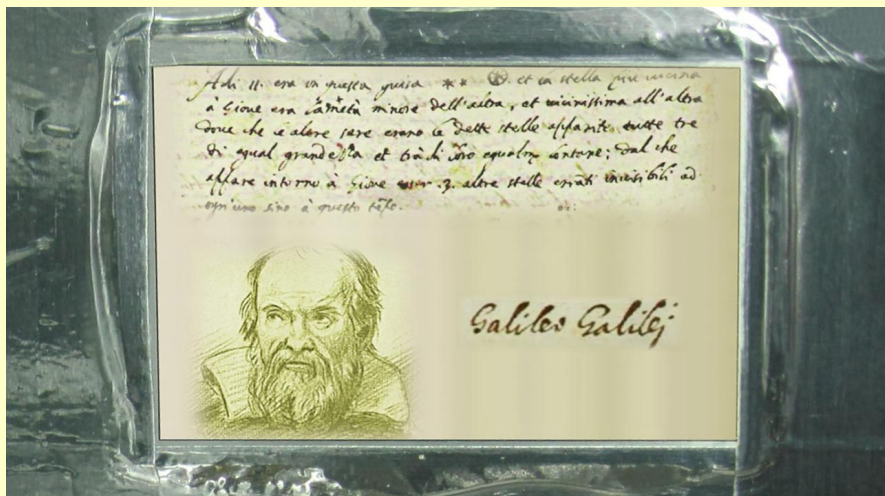 Adì 11. era in questa guisa ** et la stella più vicina
à Giove era la metà minore dell'altra, et vicinissima all'altra
dove che le altre sere erano le dette stelle apparite tutte tre
di egual grandezza et trà di loro equalm lontane; dal che
appare intorno à Giove esser .3. altre stelle errati invisibili ad
ogn'uno sino à questo tẽpo.
Galileo Galilej